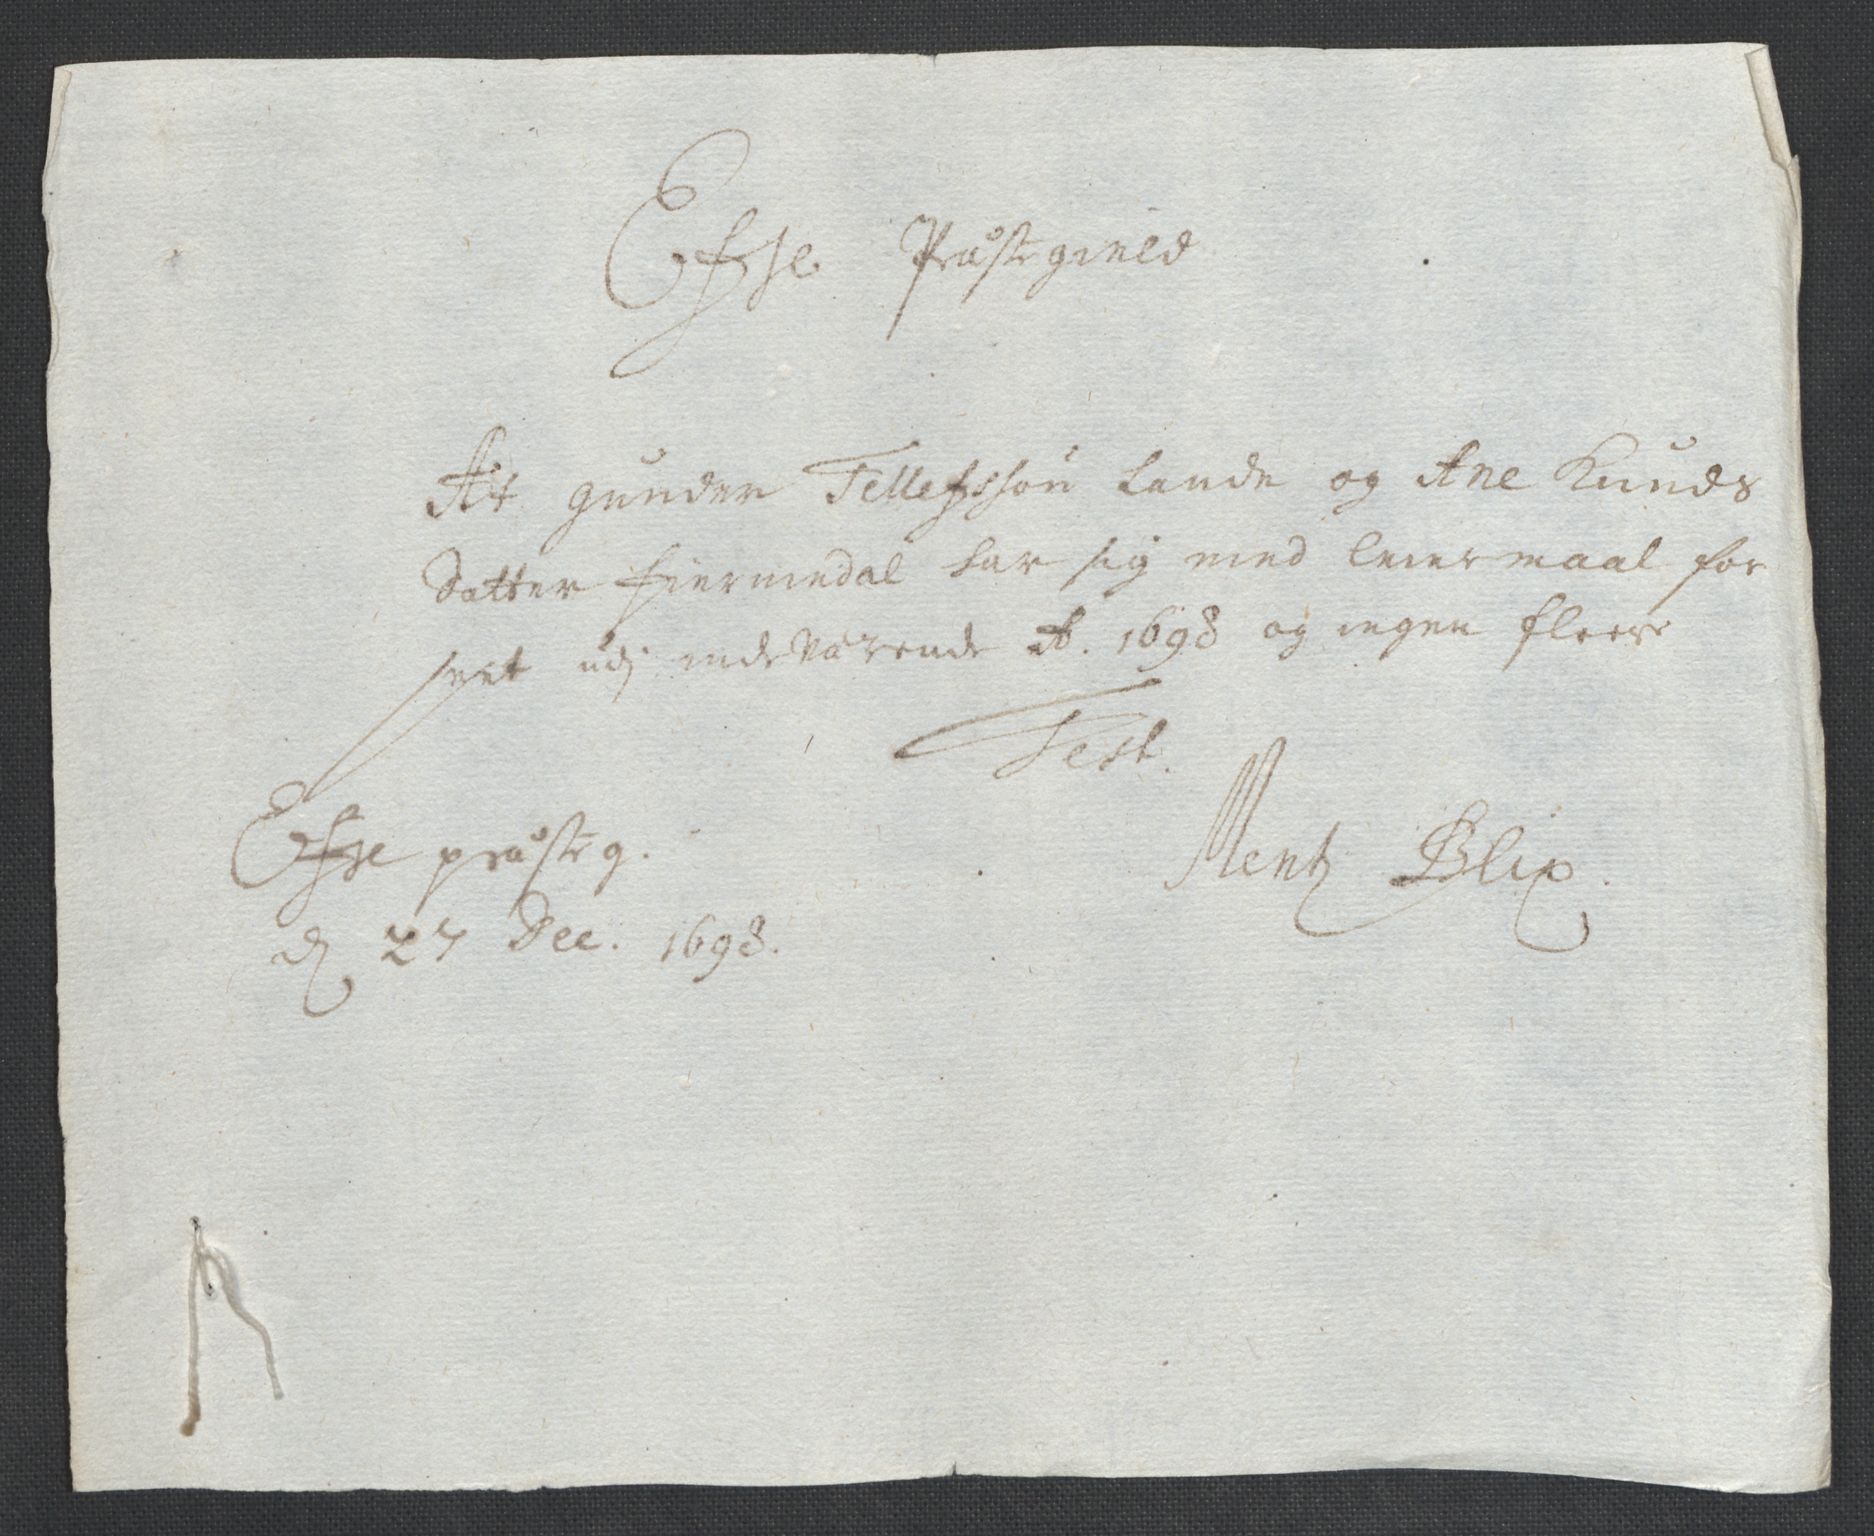 Efje Præstegield
At gunder Tellefssøn Lande og Ane Knuds
datter fiermedal har sig med leiermaal for
seet udj indeværende A. 1698 og ingen fleere
Test.
Mentz Blix.
Efje præsteg.
d 27 Dec. 1698.